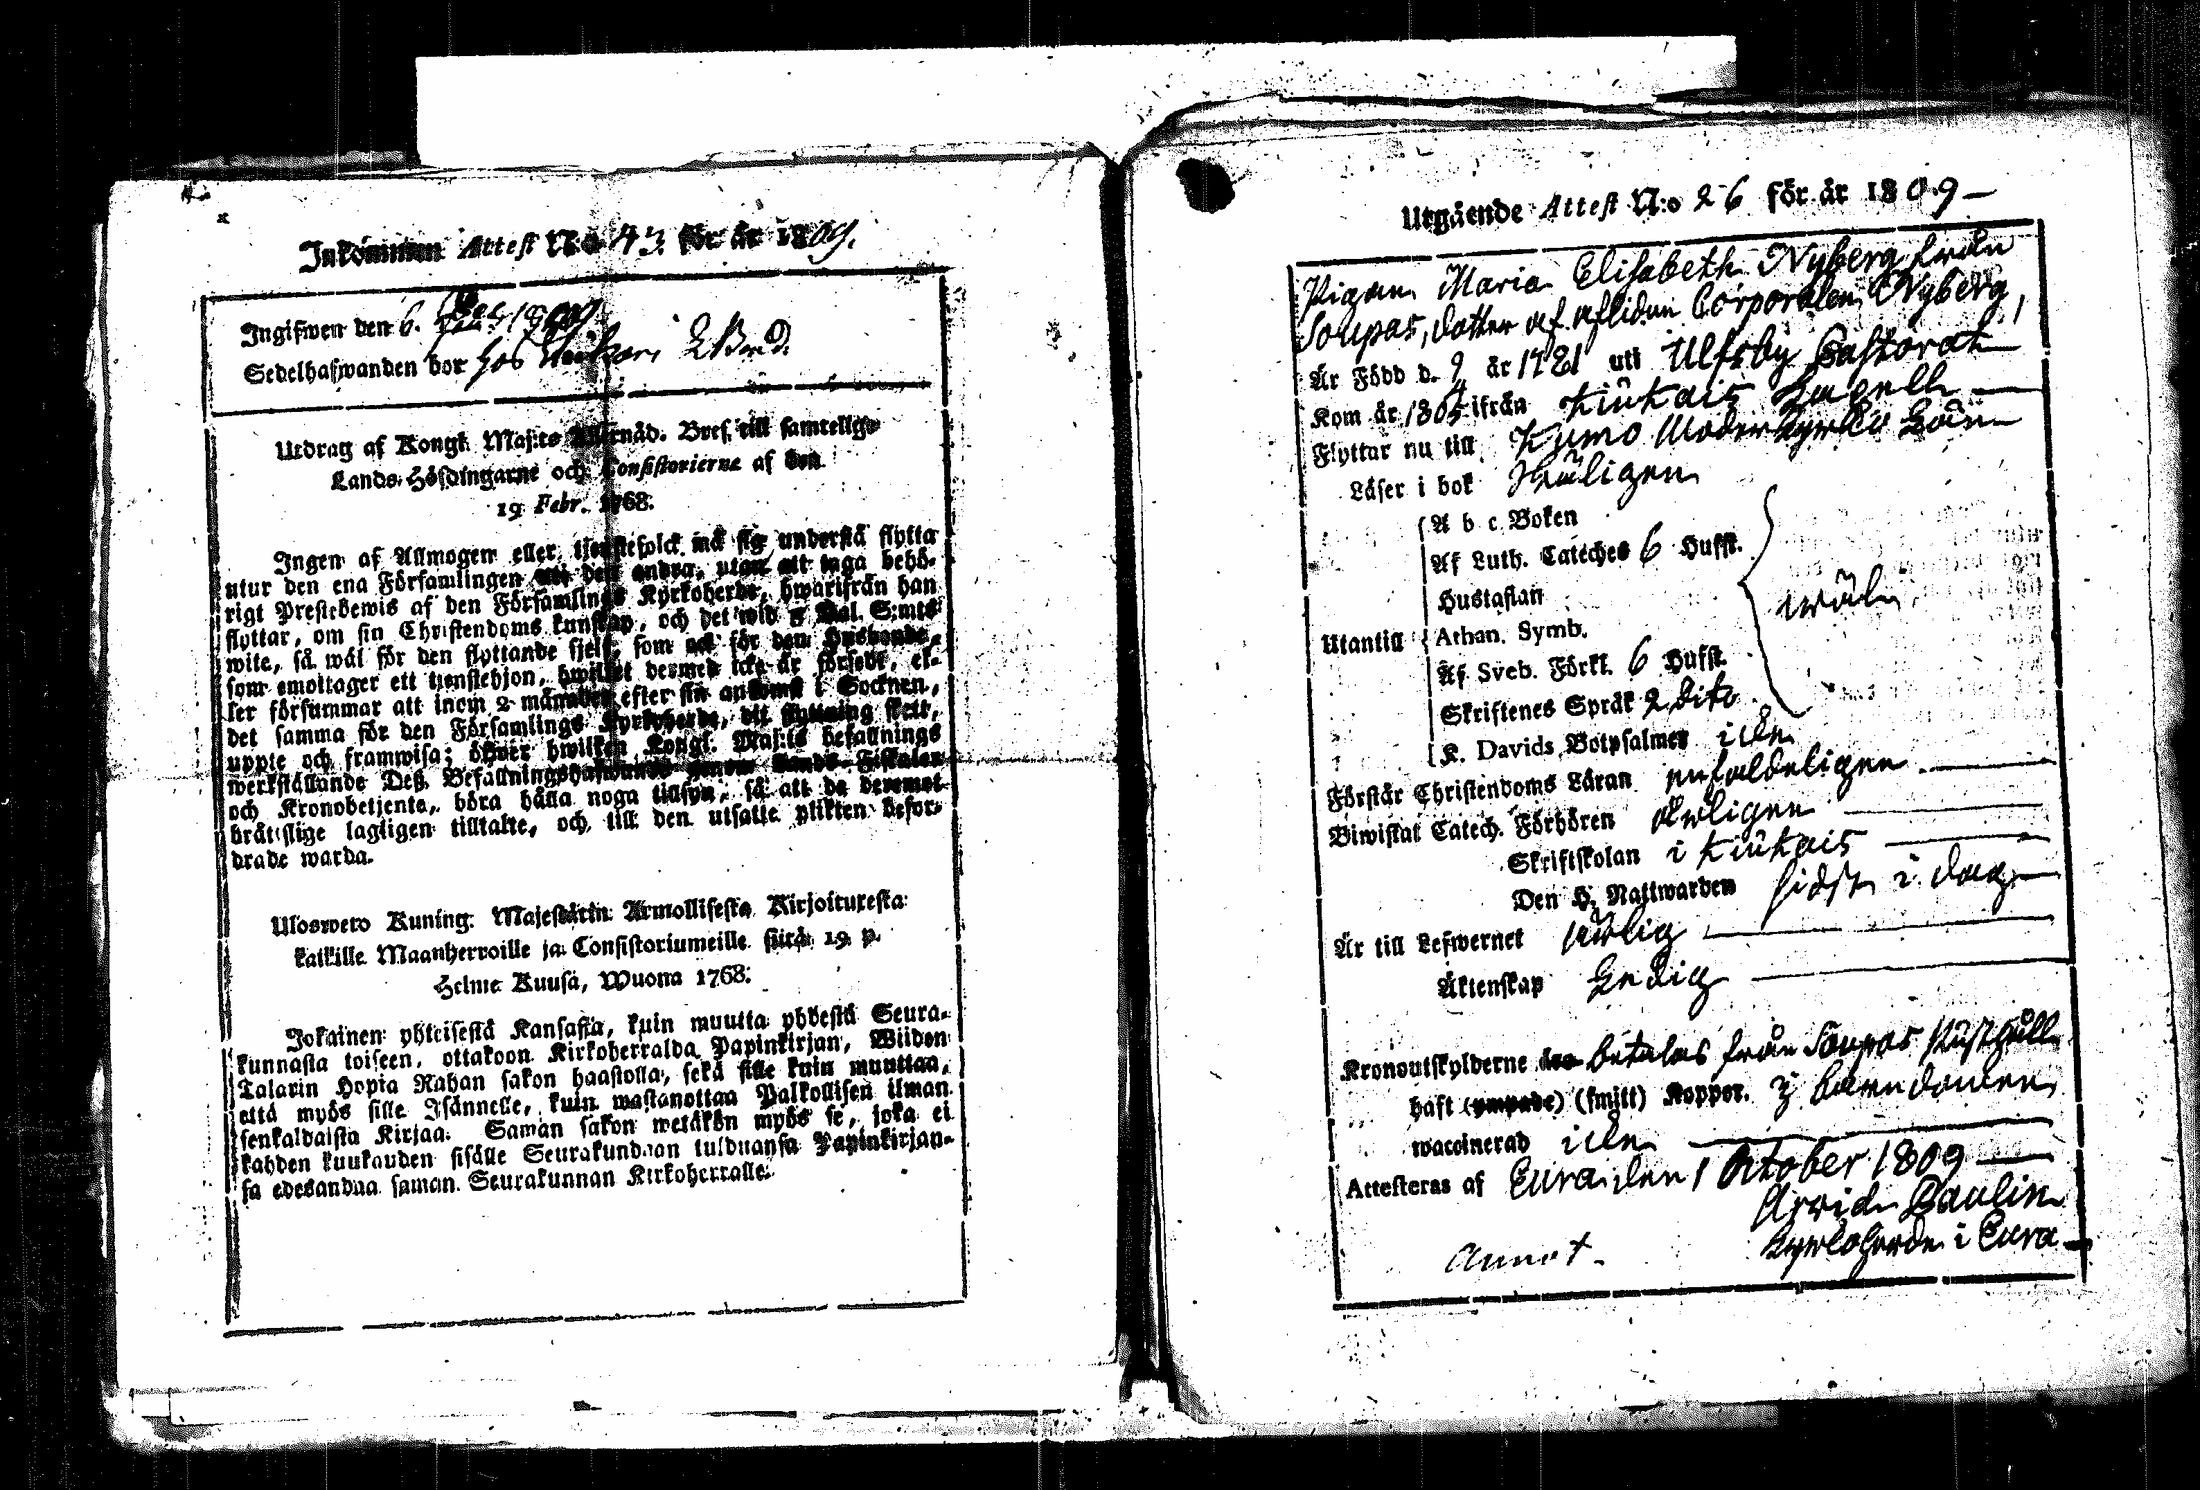 Inkommen Attest N:o 43. för år 1809.
Ingifwen den 6. 1809
Sedelhafwanden bor hos
Utdrag af Kongl. Maj:ts Allernåd. Bref till samtelige
Lands-Höfdingarne och Consistorierne af den
19 Febr. 1768.
Ingen af Allmogen eller tjenstefolck må sig understå flytta
utur den ena Församlingen uti den andra, utan att taga behö-
rigt Prestebewis af den Församlings Kyrkoherde, hwarifrån han
flyttar, om sin Christendoms kunskap, och det wid 5 Dal. S:mts
wite, så wäl för den flyttande sjelf, som ock för den Husbonde,
som emottager ett tienstehjon, hwilket dermed icke är försedt, el-
ler försummar att inom 2 månader efter sin ankomst i Socknen,
det samma för den Församlings Kyrkoherde, dit flyttning skett,
uppte och framwisa; öfwer hwilken Kongl. Maj:ts befallnings
werkställande Deß Befallningshafwande genom Lands-Fiskaler
och Kronobetjente, böra hålla noga tillsyn, så att de deremot
bråttslige lagligen tilltalte, och till den utsatte plikten befor-
drade warda.
Uloswero Kuning. Majestätin Armollisesta Kirjoituxesta
kaikille Maanherroille ja Consistoriumeille siitä 19 p.
Helme Kuusa, Wuona 1768.
Jokainen yhteisestä Kansasta, kuin muutta yhdestä Seura-
kunnasta toiseen, ottakoon Kirkoherralda Papinkirjan, Wiiden
Talarin Hopia Rahan sakon haastolla, sekä sille kuin muuttaa,
että myös sille Isännelle, kuin wastanottaa Palkollisen ilman
senkaldaista Kirjaa. Saman sakon wetäkön myös se, joka ei
kahden kuukauden sisälle Seurakundaan tulduansa Papinkirjan-
sa edesandaa saman Seurakunnan Kirkoherralle.
Utgående Attest N:o 26 för år 1809 —
Pigan Maria Elisabeth Nyberg från
Soupas, dotter af aflidne Corporalen Nyberg,
Är Född d. 9/4 år 1781 uti Ulfsby Pastorat
Kom år 1805 ifrån Kiukais Capell —
Flyttar nu till Kumo Moderkyrko Sokn
Läser i bok Skäligen
Utantill
A b c Boken
Af Luth. Catéches 6 Hufst.
Hustaflan
Athan. Symb.
Af Sveb. Förkl. 6 Hufst.
Skriftenes Språk 2 dito
K. Davids Botpsalmer icke
wäl
Förstår Christendoms Läran enfaldeligen —
Biwistat Catech. Förhören årligen —
Skriftskolan i Kiukais —
Den H. Nattwarden sidst i dag —
Är till Lefwernet ärlig —
Äktenskap Ledig —
Kronoutskylderne betalas från Soupas Rusthåll
haft (ympade) (smitt) Koppor. i barndomen
waccinerad icke —
Attesteras af Eura den 1 October 1809 —
Arvid Paulin
Kyrkoherde i Eura —
Annot.